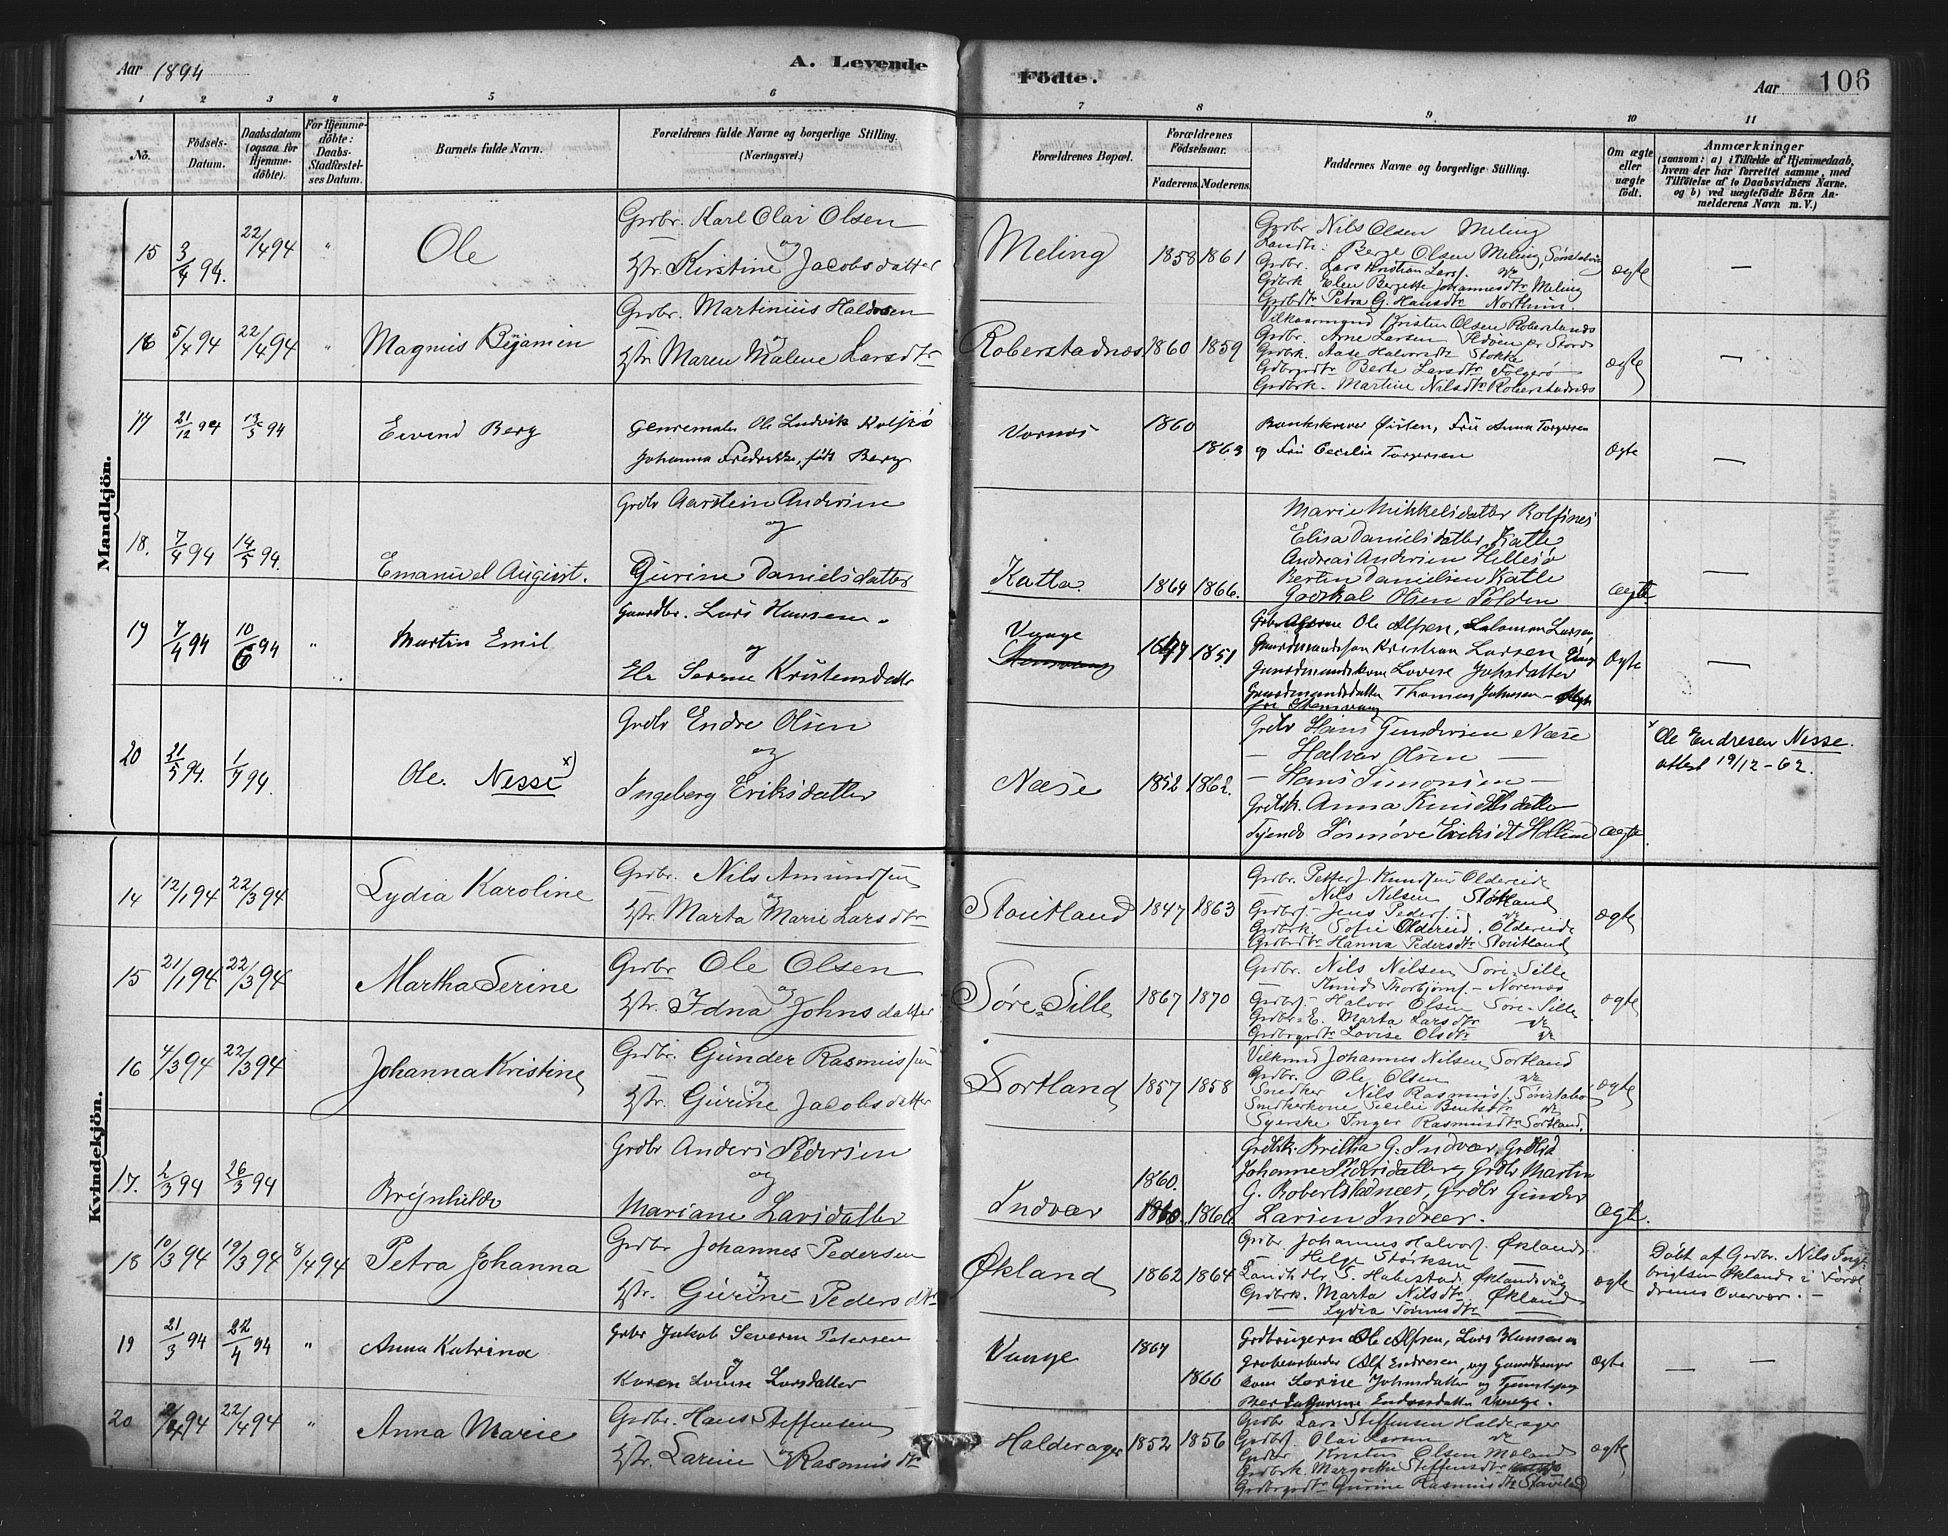 Aar 1894
A. Levende
Födte.
Aar
106
1 2 3 4 5 6 7 8 9 10 11
No.
Födsels-
Datum.
Daabsdatum
(ogsaa for
Hjemme-
döbte).
For Hjemme-
döbte:
Daabs-
Stadfæstel-
ses Datum.
Barnets fulde Navn.
Forældrenes fulde Navne og borgerlige Stilling.
(Næringsvei.)
Forældrenes Bopæl.
Forældrenes
Födselsaar.
Faderens. Moderens.
Faddernes Navne og borgerlige Stilling.
Om ægte
eller
uægte
födt.
Anmærkninger
(saasom: a) i Tilfælde af Hjemmedaab,
hvem der har forrettet samme, med
Tilföielse af to Daabsvidners Navne.
og b) ved uægtefödte Börn An-
melderens Navn m. V.)
Mandkjön.
15 3/4 94. 22/4 94 " Ole
Grdbr. Karl Olai Olsen
og
Hstr. Kirstine Jacobsdatter
Meling 1858 1861
Grdbr Nils Olsen Meling
Berge Olsen Meling, Sønstabø
Grdbr. Lars Kristian Larsf.
Grdbrk Elen Bergette Johannesdtr Meling
Grdbrdtr Petra G. Hansdtr
ægte —
16 5/4 94 22/4 94 " Magnus Benjamin
Grdbr. Martinius Haldorsen
og
Hstr Maren Malene Larsdtr
Roberstadnæs 1860 1859
Vilkaarmand Kristen Olsen Roberstadnæs
Grdbr. Arne Larsen Hoven pr Stord
Grdbrk. Aase Halvorsdtr Stokke
Grdbrgrdtr Berte Larsdtr Folgerø
Grdbrk. Martine Nilsdtr Roberstadnæs
ægte —
17 21/12 94 13/5 94 Eivend Berg
Ole Ludvik
Johanna Fredrikke, født Berg
Vornes 1860
1863
Bankskriver Øisten, Fru Anna Torgersen
og Fru Cecilie Torgersen
ægte —
18. 7/4 94 14/5 94. Emanuel August.
Grdbr Aarstein Andersen
og
Gurine Danielsdatter
Katla. 1864 1866.
Marie Mikkelsdatter Rolfsnes
Elisa Danielsdatter Katle
Andreas Andersen Hillesø
Bertin Danielsen Katle
Olsen Folden
ægte. —
19 7/4 94 10/6 94 " Martin Emil
Gaardbr. Lars Hansen
og
Serine Kristensdatter
Vaage 1851
Ole Alfsen, Salomon Larsen
Gaardmandssøn Kristian Larsen Vaage
Gaardmandskone Lovise Johsdatter
Gaardmandsdatter Thomas Johnsen
ægte —
20 21/5 94. 1/7 94. Ole. Nesse x)
Grdbr Endre Olsen
og
Ingeberg Eriksdatter
Næse 1852 1862.
Grdbr Hans Gundersen Næse
— Halvor Olsen —
— Hans Simonsen —
Grdbrk. Anna Knudtsdatter
Tjende Sønnøve Eriksdt
ægte
x Ole Endresen Nesse.
attest 19/12-62.
Kvindekjön.
14 12/1 94 22/3 94 Lydia Karoline
Grdbr. Nils Amundsen
og
Hstr. Marta Marie Larsdtr
Stoutland 1847 1863
Grdbr. Petter J. Knudsen Oldereide
— Nils Nilsen Stoutland
Grdbrs. Jens Peders.
Grdbrk. Sofie Oldereid. Oldereide
Grdbrdtr Hanna Pedersdtr Stoutland
ægte
15 21/1 94 22/3 94 Martha Serine
Grdbr Ole Olsen
og
Hstr. Edna Johnsdatter
Søre-Sille 1867 1870
Grdbr. Nils Nilsen Søre-Sille
— Knud Thorbjørns. Norenæs
Grdbrs. Halvor Olsen Søre-Sille
Grdbr.E. Marta Larsdtr
Grdbrgrdtr Lovise Olsdtr
ægte
16 4/3 94 22/3 94 Johanna Kristine
Grdbr. Gunder Rasmussen
og
Hstr. Gurine Jacobsdatter
Sortland 1857 1858
Vilkmd Johannes Nilsen Sortland
Grdbr. Ole Olsen
Snedker Nils Rasmus. Sønstabø
Snedkerkone Secilie Bentsdtr
Syerske Inger Rasmusdtr Sortland.
ægte
17. 2/3 94 26/3 94 Brynhilde
Grdbr Anders Pedersen
og
Mariane Larsdatter
Indvær 1860.
1860. 1860
Grdbrk. Britha G. Indvær,
Johanne Pedersdatter, Grdbr Martin
G. Robertstadnæs, Grdbr Gunder
Larsen Indvær.
ægte.
18 10/3 94 19/3 94 8/4 94 Petra Johanna
Grdbr Johannes Pedersen
og
Hstr. Gurine Pedersdtr
Økland 1862 1864
Grdbr. Johannes Halvors. Økland
— Helge Størksen —
Landhdlr S. Haberstad, Øklandsvåg
Grdbrk. Marta Nilsdtr Økland
— Lydia —
ægte
Døbt af Grdbr. Nils Ingi-
brigtsen Økland i Foræl-
drenes Overvær. —
19 21/3 94 22/4 94 " Anna Katrina
Grbr Jakob Severin Petersen
og
Karen Lovise Larsdatter
Vaage 1867
1866
Grdbrugern Ole Alfsen, Lars Hansen
Grubearbeider Alf Endresen, og Gaardbruger
kone Serine Johnsdatter og Tjenestepige
Endresdatter Vaage.
ægte — —
20 22/4 94 " Anna Marie
Grdbr. Hans Steffensen
og
Hstr. Larine Rasmusdtr
Halderager 1852 1856
Grdbr Lars Steffensen Halderager
Grdbrs. Olai Larsen
Grdbr Kristen Olsen Meland
Grdbrk. Margrethe Steffensdtr
Grdbrgrdtr Gurine Rasmusdtr Stavland
ægte